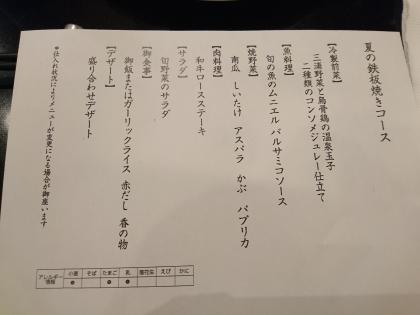 夏の鉄板焼きコース
【冷製前菜】
三浦野菜と烏骨鶏の温泉玉子
二種類のコンソメジュレー仕立て
【魚料理】
旬の魚のムニエル バルサミコソース
【焼野菜】
南瓜 しいたけ アスパラ かぶ パプリカ
【肉料理】
和牛ロースステーキ
【サラダ】
旬野菜のサラダ
【御食事】
御飯またはガーリックライス 赤だし 香の物
【デザート】
盛り合わせデザート
*仕入れ状況によりメニューが変更になる場合が御座います
アレルギー情報 小麦 そば たまご 乳 落花生 えび かに
● ● ●